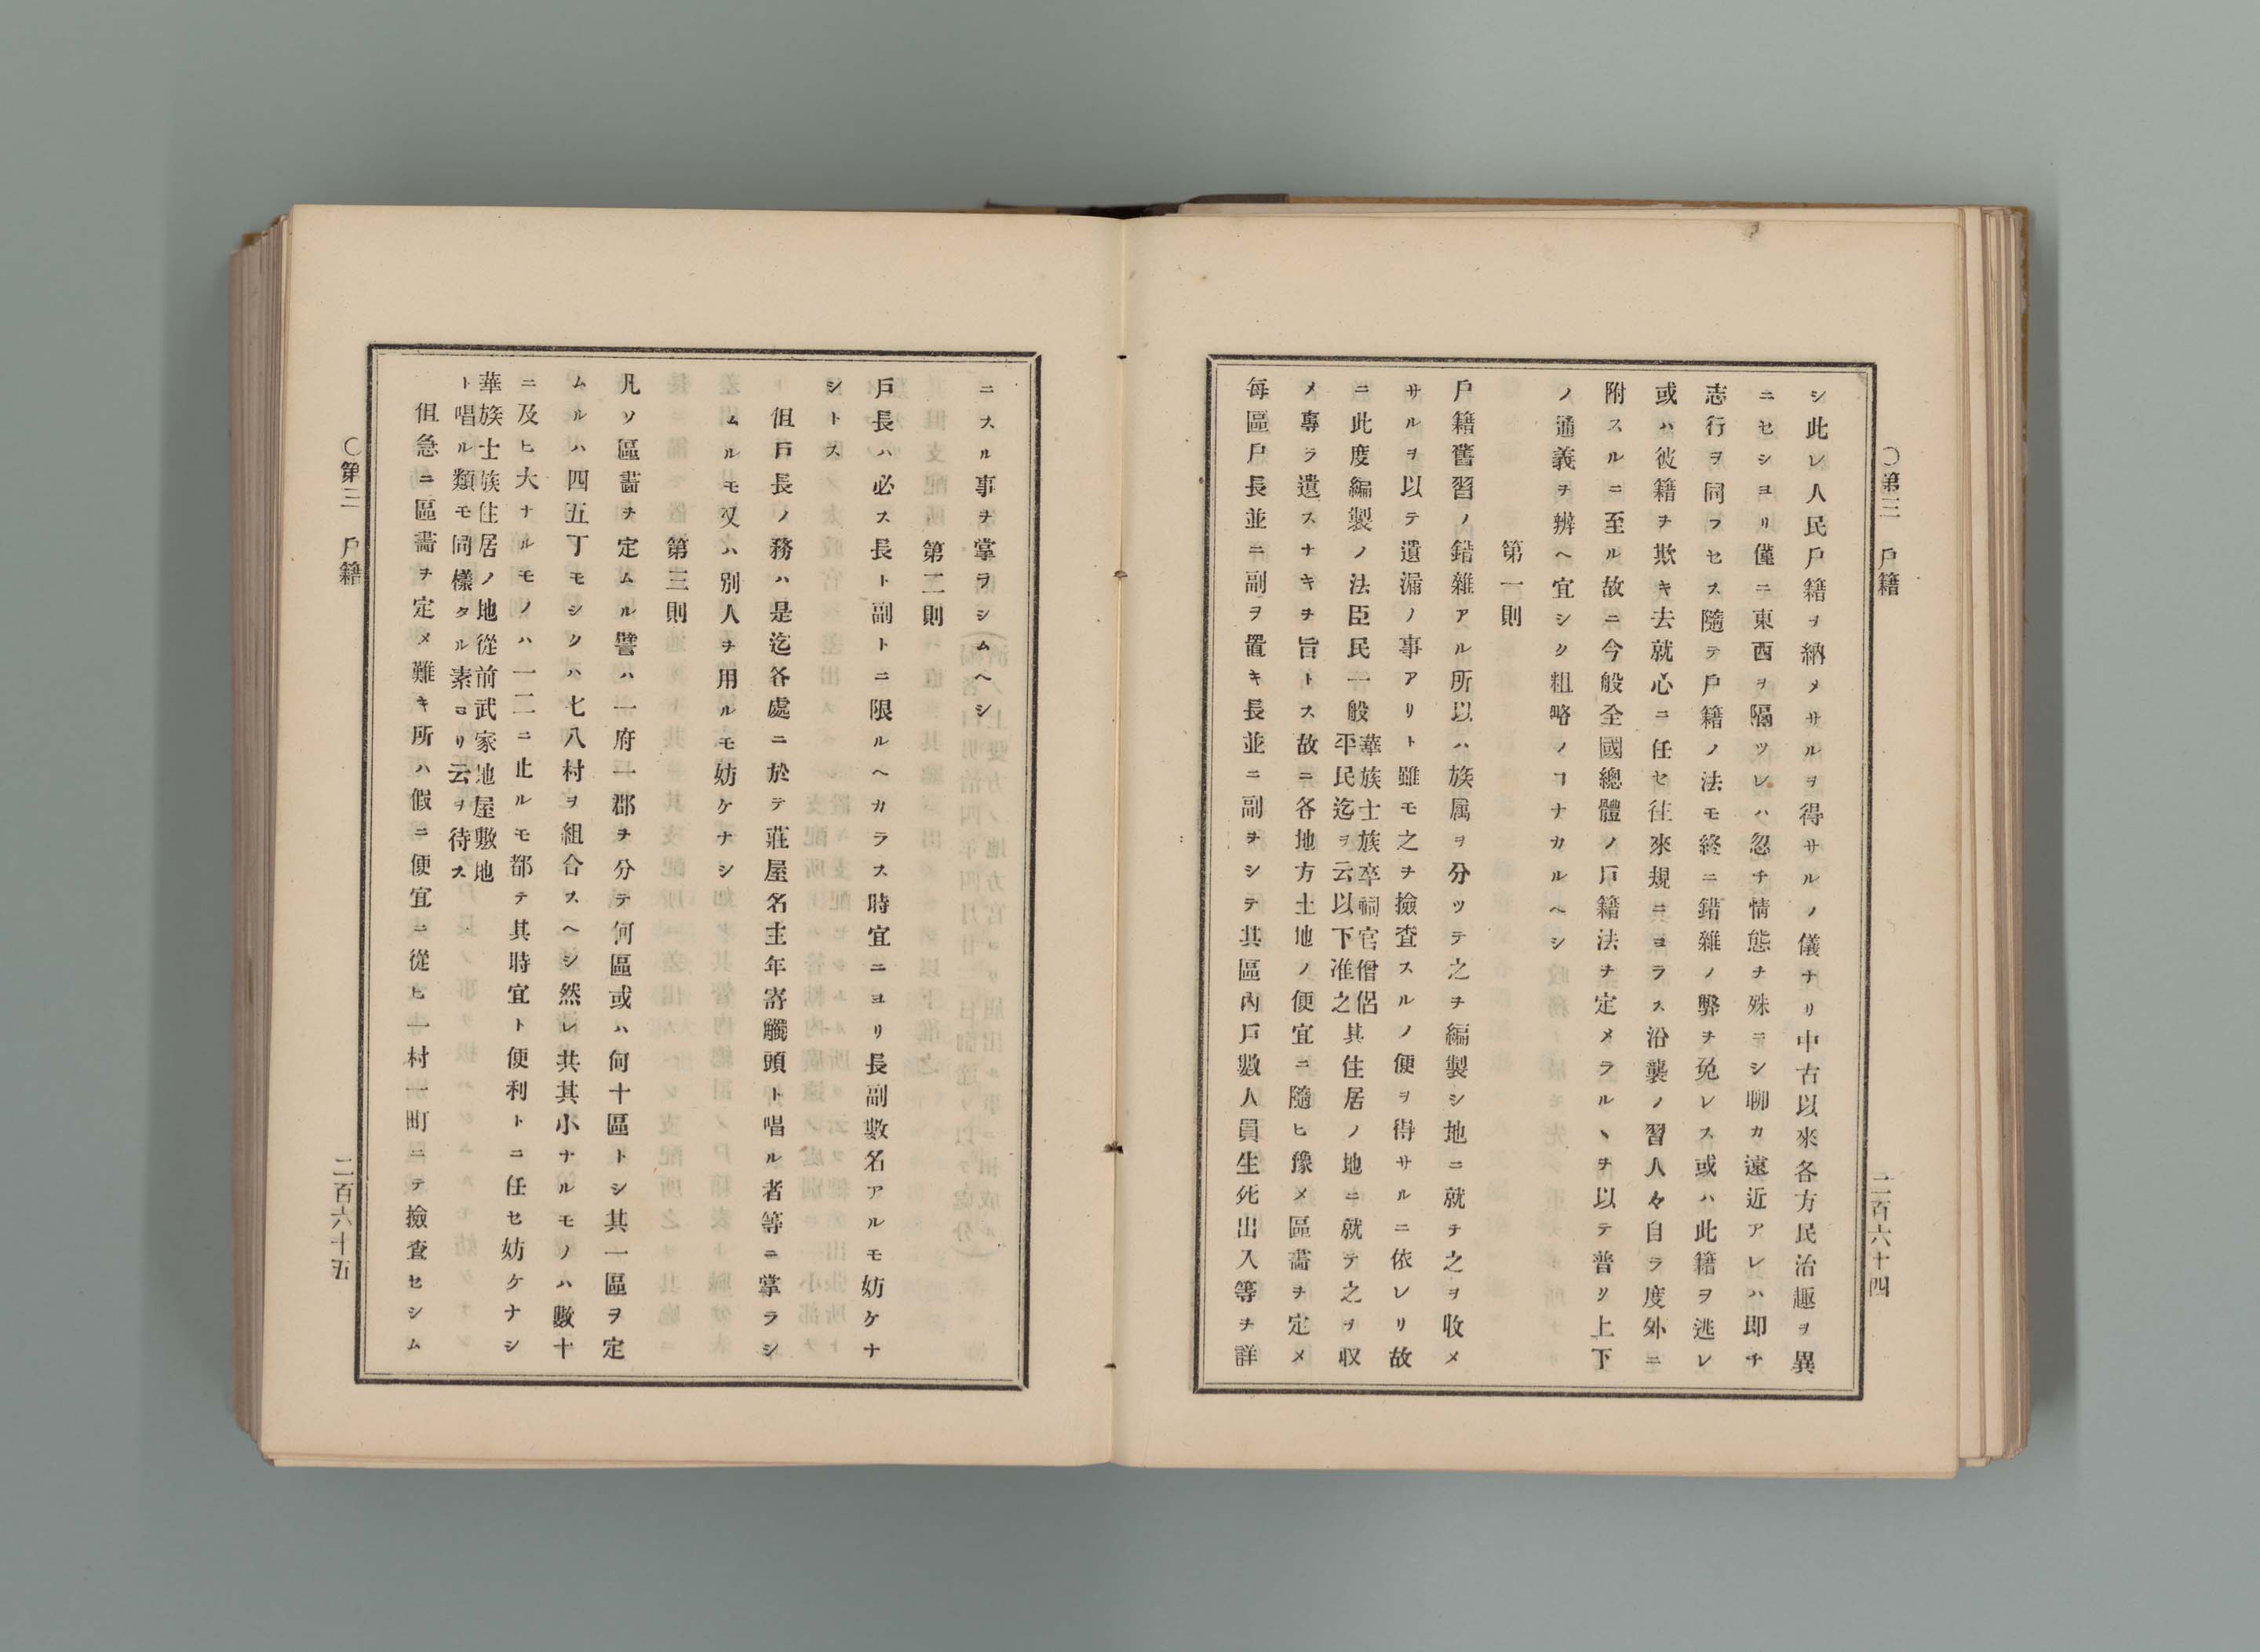 〇第三　戶籍
二百六十四
シ此レ人民戶籍ヲ納メサルヲ得サルノ儀ナリ中古以來各方民治趣ヲ異
ニセシヨリ僅ニ東西ヲ隔ツレハ忽チ情態ヲ殊ニシ聊カ遠近アレハ卽チ
志行ヲ同フセス隨テ戶籍ノ法モ終ニ錯雜ノ弊ヲ免レス或ハ此籍ヲ逃レ
或ハ彼籍ヲ欺キ去就心ニ任セ往來規ニヨラス沿襲ノ習人々自ラ度外ニ
附スルニ至ル故ニ今般全國總體ノ戶籍法ヲ定メラルヽヲ以テ普ク上下
ノ通義ヲ辨ヘ宜シク粗略ノヿナカルヘシ
第一則
戶籍舊習ノ錯雜アル所以ハ族属ヲ分ツテ之ヲ編製シ地ニ就テ之ヲ收メ
サルヲ以テ遺漏ノ事アリト雖モ之ヲ撿査スルノ便ヲ得サルニ依レリ故
ニ此度編製ノ法臣民一般華族士族卒祠官僧侶平民迄ヲ云以下准之其住居ノ地ニ就テ之ヲ収
メ專ラ遺スナキヲ旨トス故ニ各地方土地ノ便宜ニ隨ヒ豫メ區畵ヲ定メ
每區戶長並ニ副ヲ置キ長並ニ副ヲシテ其區內戶數人員生死出入等ヲ詳
ニスル事ヲ掌ラシムヘシ
第二則
戶長ハ必ス長ト副トニ限ルヘカラス時宜ニヨリ長副數名アルモ妨ケナ
シトス
伹戶長ノ務ハ是迄各處ニ於テ莊屋名主年寄觸頭ト唱ル者等ニ掌ラシ
ムルモ又ハ別人ヲ用ルモ妨ケナシ
第三則
凡ソ區畵ヲ定ムル譬ハ一府一郡ヲ分テ何區或ハ何十區トシ其一區ヲ定
ムルハ四五丁モシクハ七八村ヲ組合スヘシ然レ共其小ナルモノハ數十
ニ及ヒ大ナルモノハ一二ニ止ルモ都テ其時宜ト便利トニ任セ妨ケナシ
華族士族住居ノ地從前武家地屋敷地
ト唱ル類モ同樣タル素ヨリ云ヲ待ス
伹急ニ區畵ヲ定メ難キ所ハ假ニ便宜ニ從ヒ一村一町ニテ撿査セシム
〇第三　戶籍
二百六十五